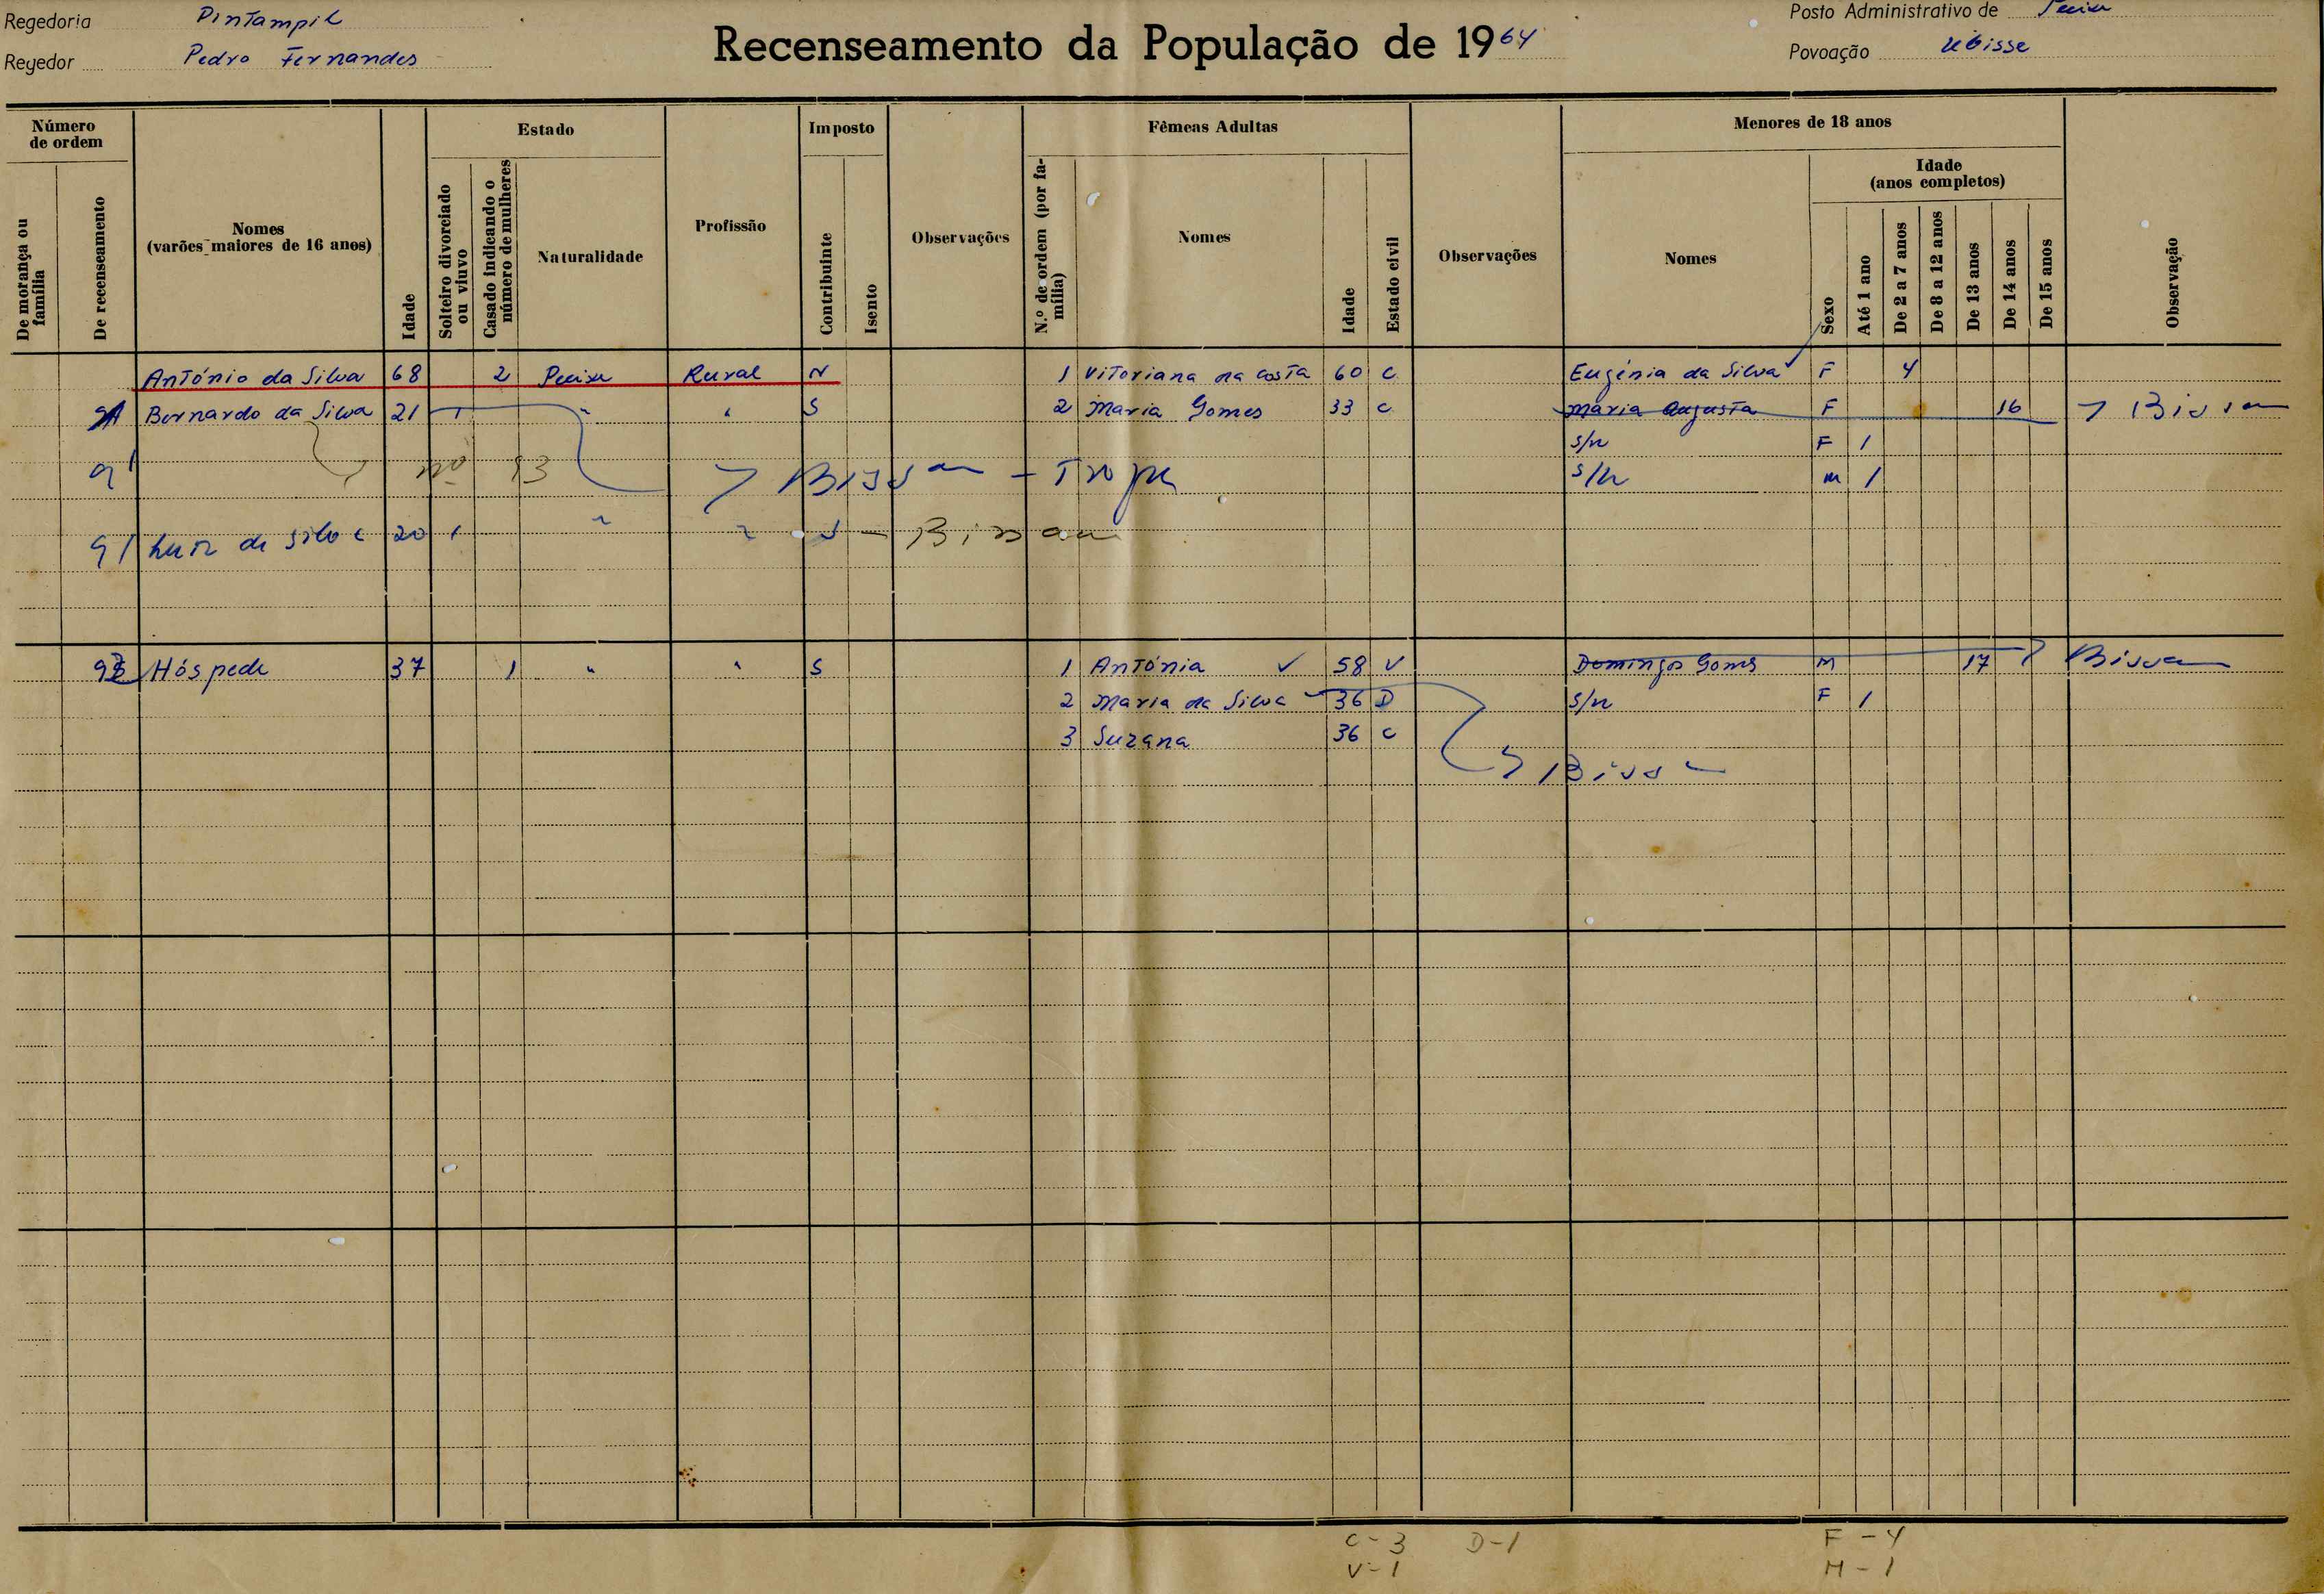 Regedoria Pintampil
Regedor Pedro Fernandes
Recenseamento da População de 1964
Posto Administrativo de Pecixe
Povoação Ubisse
Número de ordem
De morança ou família
De recenseamento
Nomes
(varões maiores de 16 anos)
Idade
Estado
Solteiro divorciado ou viuvo
Casado indicando o número de mulheres
Naturalidade
Profissão
Imposto
Contribuinte
Isento
Observações
Fêmeas Adultas
N.º de ordem (por família)
Nomes
Idade
Estado civil
Observações
Menores de 18 anos
Nomes
Sexo
Idade
(anos completos)
Até 1 ano
De 2 a 7 anos
De 8 a 12 anos
De 13 anos
De 14 anos
De 15 anos
Observação
António da Silva 68 2 Pecixe Rural N 1 Vitoriana da Costa 60 C Eugénia da Silva F 4
91 Bernardo da Silva 21 1 " " S 2 Maria Gomes 33 C Maria Augusta F 16 Bissau
S/n F 1
91 nº 93 Bissau - Tropa S/n M 1
91 Luiz da Silva 20 1 " " S - Bissau
Hóspede 37 1 " " S 1 Antónia V 58 V Domingos Gomes M 17 Bissau
2 Maria da Silva 36 D S/n F 1
3 Suzana 36 C
Bissau
C-3 D-1 F-4
V-1 M-1